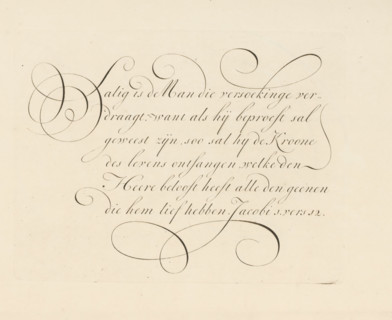 Salig is de Man die versoekinge ver-
draagt, want als hij beproeft sal
geweest zijn, soo sal hy de Kroone
des levens ontfangen welke den
Heere belooft heeft alle den geenen
die hem lief hebben Jacobi 1 vers 12.